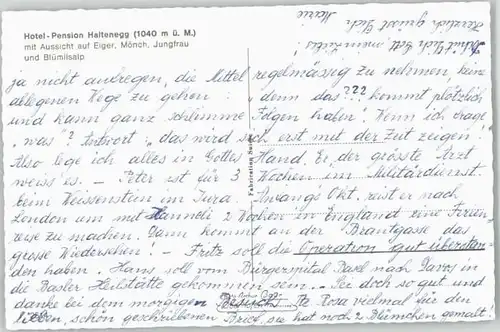 Hotel-Pension Haltenegg (1040 m ü. M.)
mit Aussicht auf Eiger, Mönch, Jungfrau
und Blümlisalp
ja nicht aufregen, die Mittel regelmässig zu nehmen, keine
allegenen Wege zu gehen „denn das ??? kommt plötzlich
und kann ganz schlimme Folgen haben. Wenn ich frage
„was"? Antwort: „das wird sich erst mit der Zeit zeigen!
Also lege ich alles in Gottes Hand. Er, der grösste Arzt
weiss es. – Peter ist für 3 Wochen im Militärdienst.
beim Weissenstein im Jura. Anfangs Okt. reist er nach
London um mit Hanneli 2 Wochen in England eine Ferien
reise zu machen. Dann kommt an der Brantgasse das
grosse Wiedersehen! – Fritz soll die Operation gut überstan-
den haben. Hans soll vom Bürgerspital Basel nach Davos in
die Basler Heilstätte gekommen sein. – Sei doch so gut und
danke bei dem morgigen Besuch Rosa vielmal für den
lieben, schön geschriebenen Brief, sie hat noch 2 Blümchen gemalt!
Herzlich grüsst Dich
Marie
Fabrication Suisse